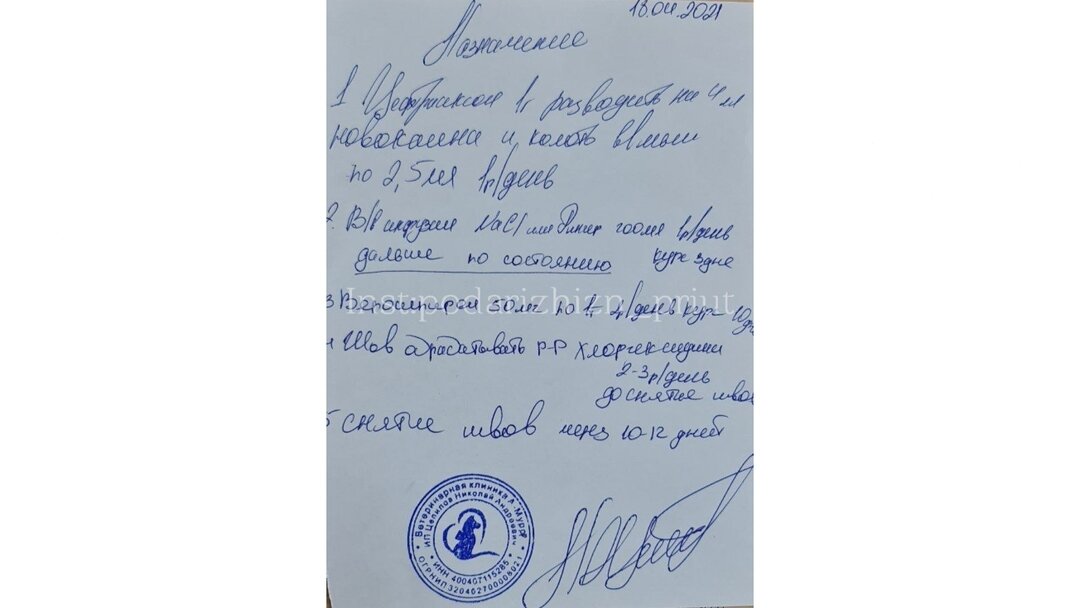 18.04.2021
Назначение
1 Цефтриаксон 1г разводить на 4 мл
новокаина и колоть в/мыш
по 2,5 мл 1р/день
2. В/В инфузии NaCl или Рингер 1р/день
дальше по состоянию курс 3 дня
3 Верошпирон 50мг по 1т /день курс 10
Шов обрабатывать р-р хлоргексидина
2-3р/день
до снятие швов
5 снятие швов через 10-12 дней
Inst:podarizhizn_priut
Ветеринарная клиника А-Мурр
ИП Цепилов Николай Андреевич
ИНН 400407115285
ОГРНИП 320402700006021